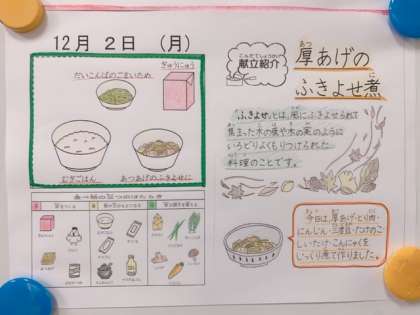 12月 2日 (月)
ぎゅうにゅう
だいこんばのごまいため
むぎごはん
あつあげのふきよせに
こんだてしょうかい
献立紹介
あつ
厚あげの
に
ふきよせ煮
「ふきよせ」とは、風にふきよせられて
集まった木の葉や木の実のように
いろどりよくもりつけられた
料理のことです。
今日は、厚あげ・とり肉・
にんじん・三度豆・たけのこ
しいたけ・こんにゃくを
じっくり煮て作りました。